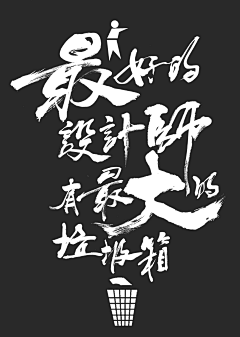 最好的
設計師
有最大的
垃圾箱